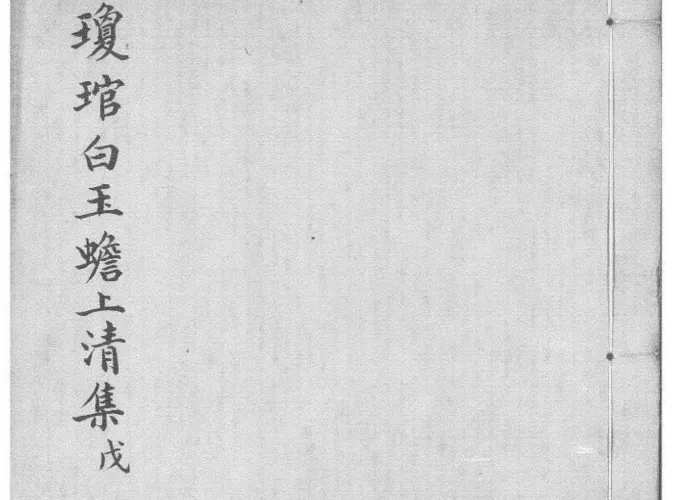 瓊琯白玉蟾上清集戊